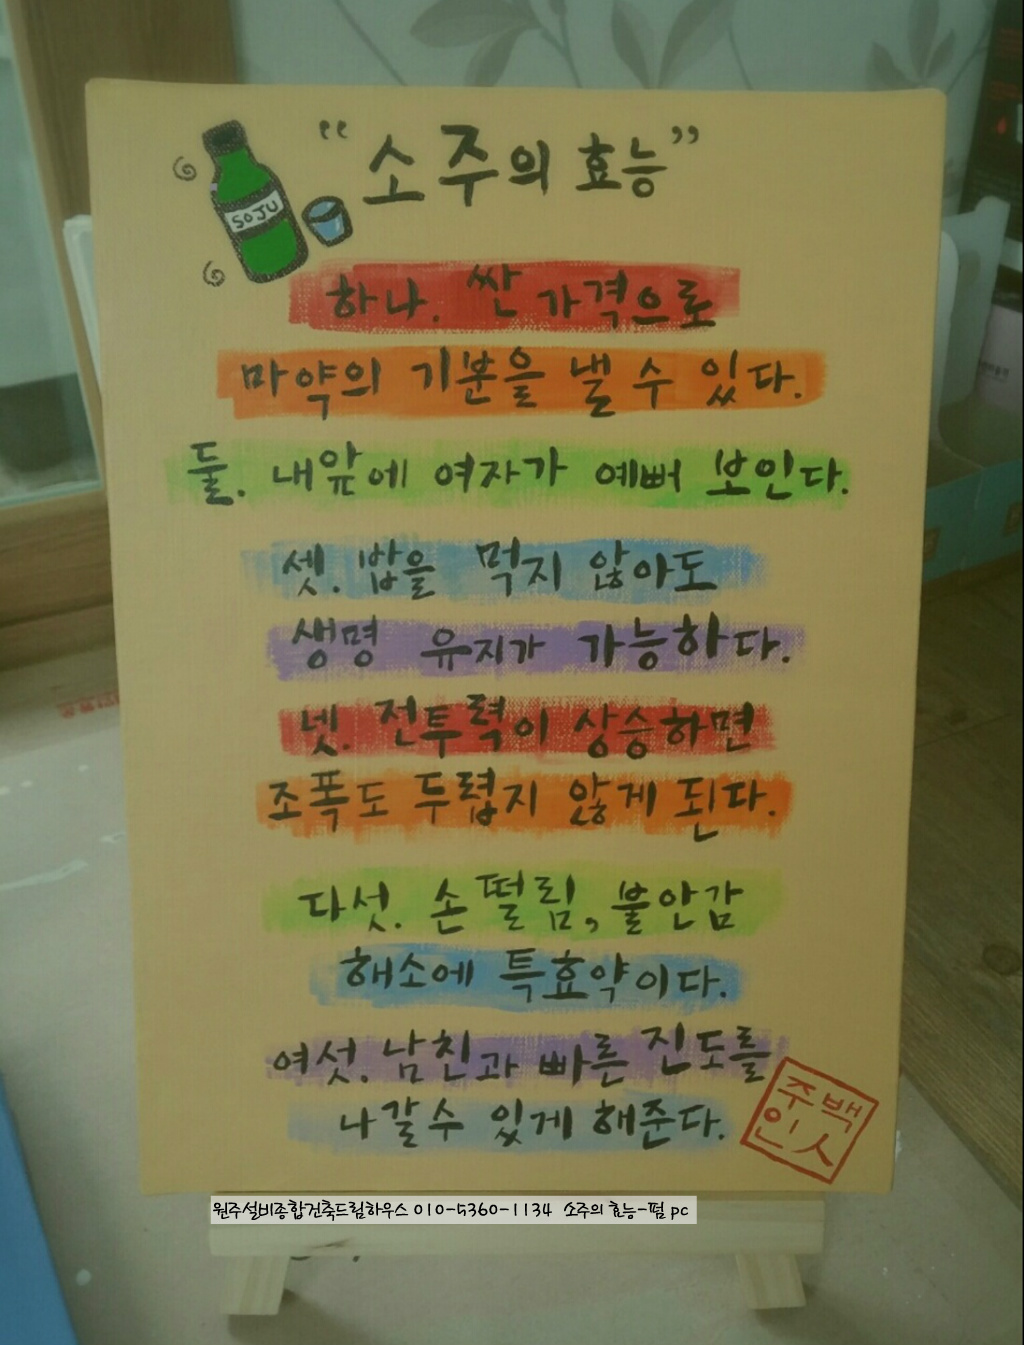 "소주의 효능"
SOJU
하나. 싼 가격으로
마약의 기분을 낼 수 있다.
둘. 내앞에 여자가 예뻐 보인다.
셋. 밥을 먹지 않아도
생명 유지가 가능하다.
넷. 전투력이 상승하면
조폭도 두렵지 않게 된다.
다섯. 손떨림, 불안감
해소에 특효약이다.
여섯. 남친과 빠른 진도를
나갈수 있게 해준다.
주백
인人
원주설비종합건축드림하우스 010-5360-1134 소주의 효능-펌 pc